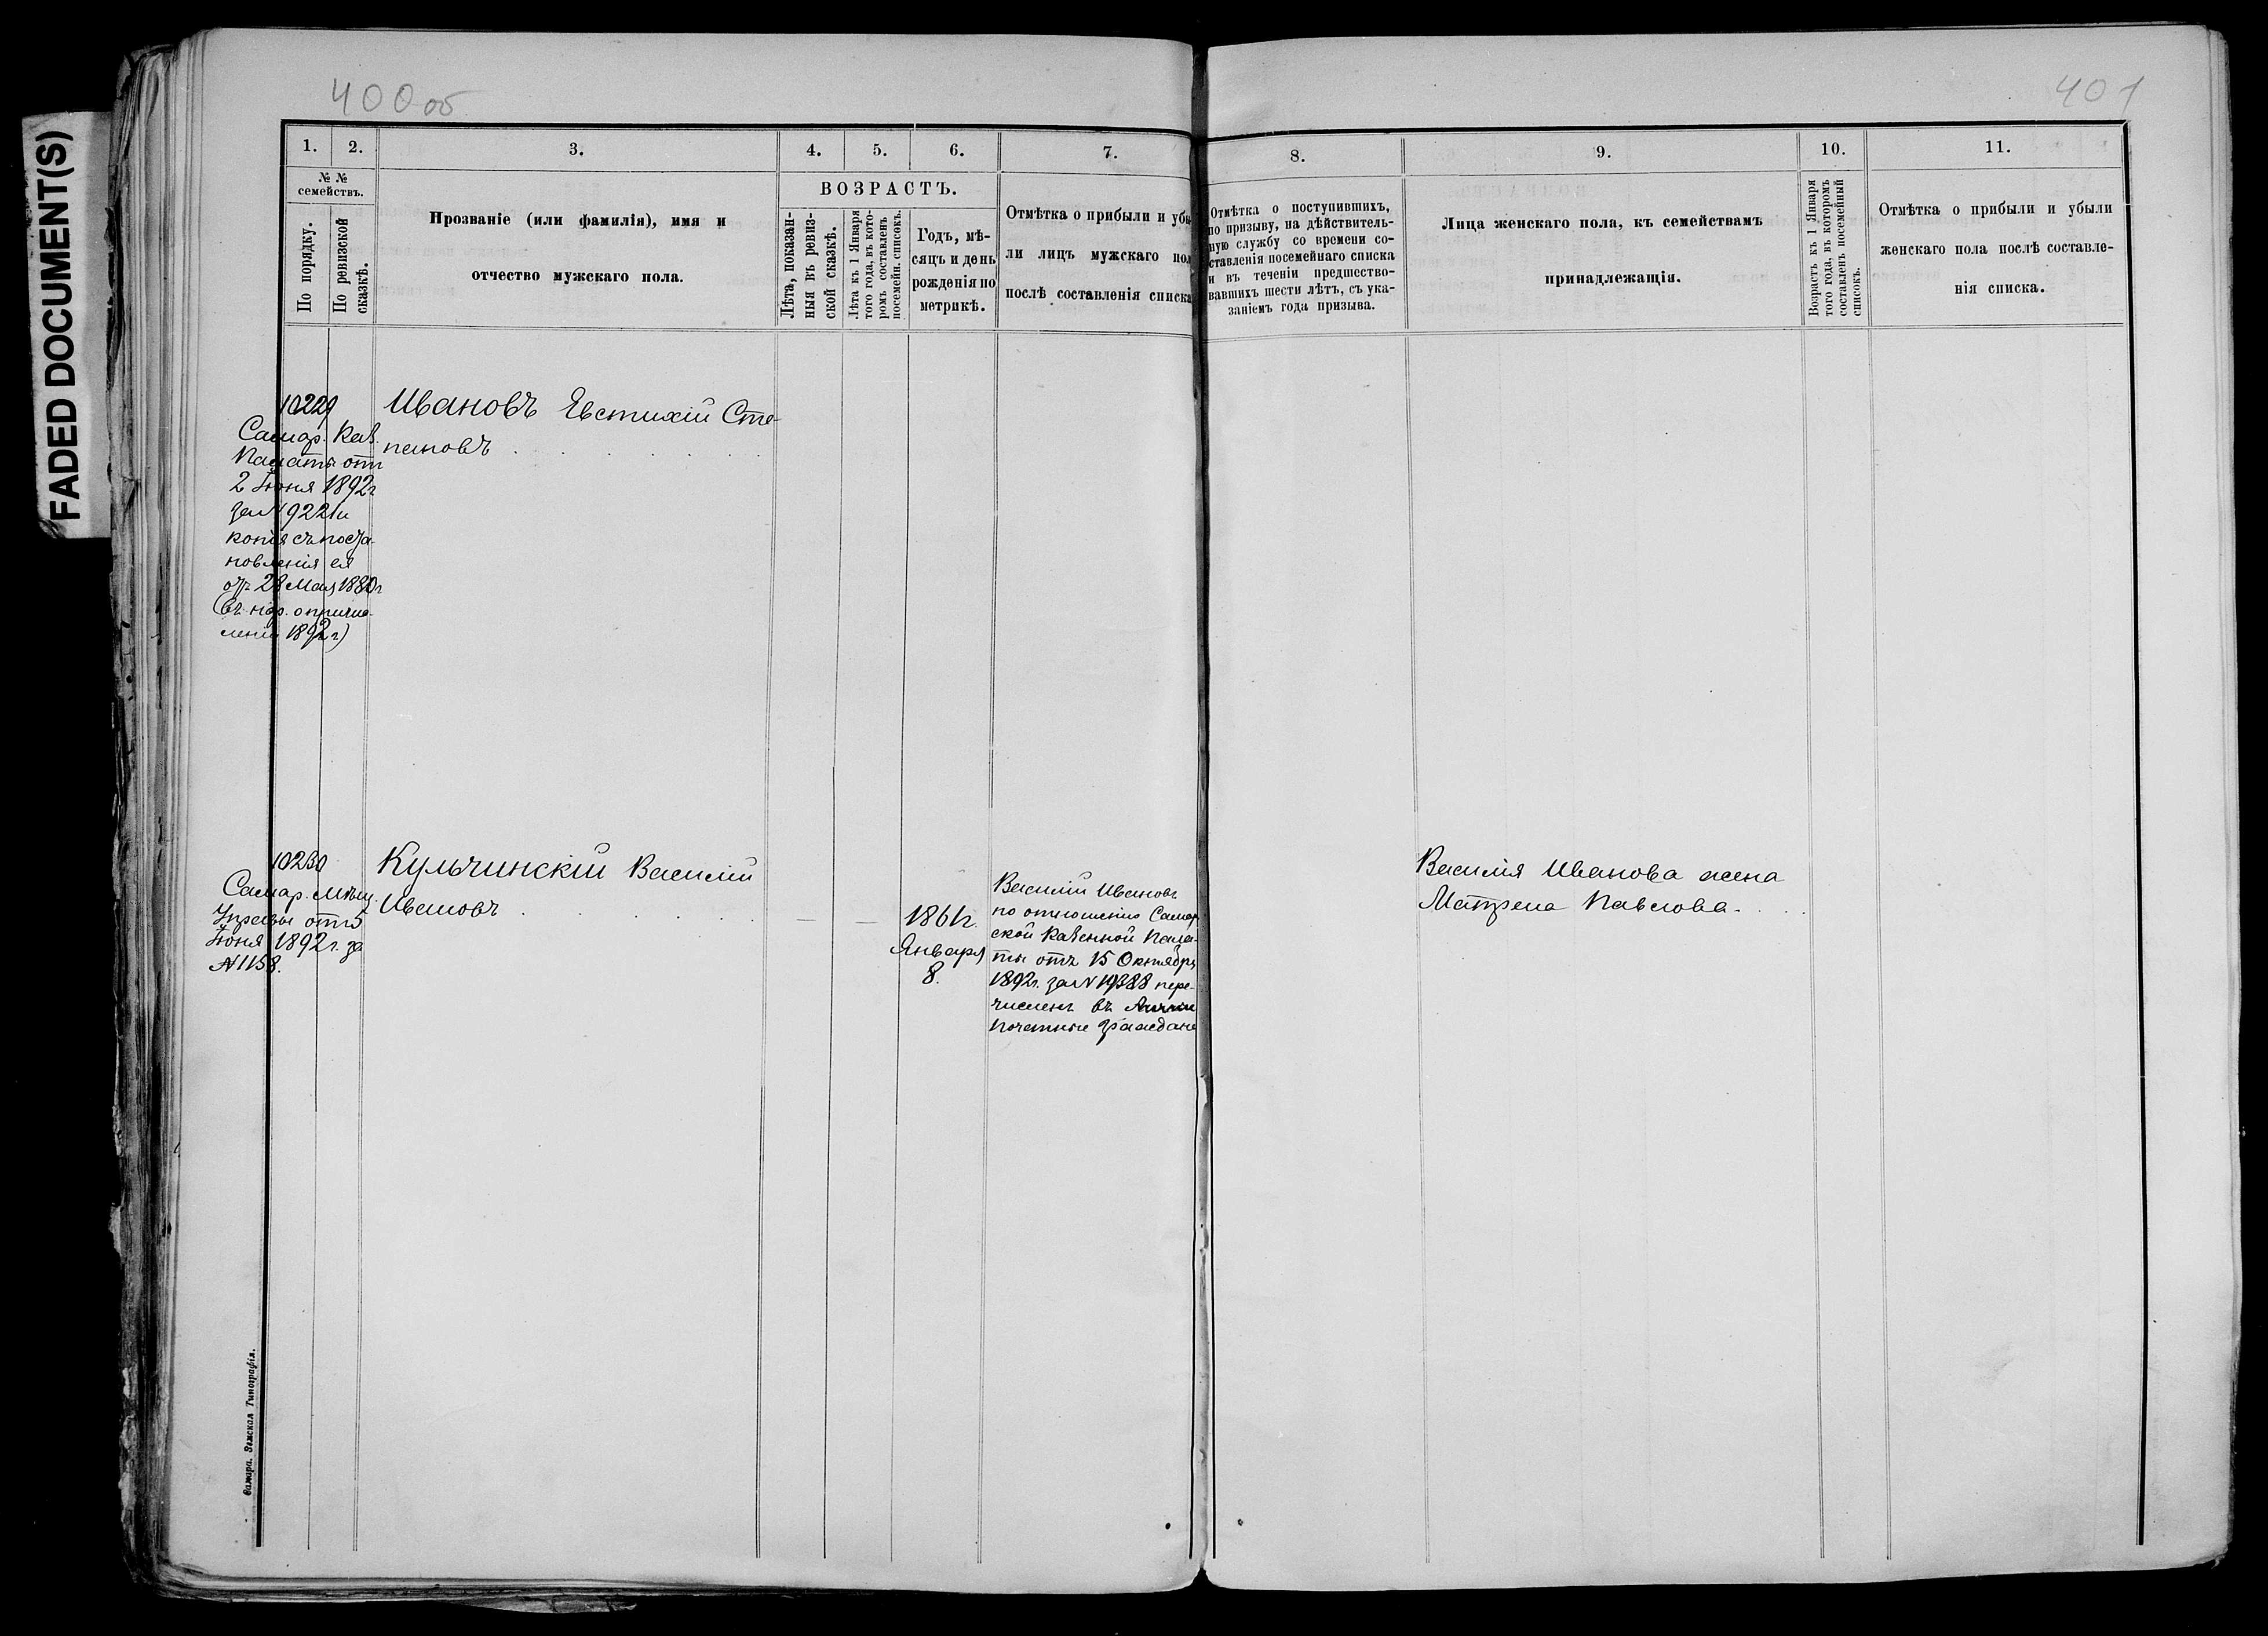 FADED DOCUMENT(S)
400об
401
1.
2.
3.
4.
5.
6.
7.
8.
9.
10.
11.
№ №
семействъ.
По порядку.
По ревизской
сказкѣ.
Прозваніе (или фамилія), имя и
отчество мужскаго пола.
ВОЗРАСТЪ.
Лѣта, показан-
ныя въ ревиз-
ской сказкѣ.
Лѣта къ 1 Января
того года, въ кото-
ромъ составленъ
посемейн. списокъ.
Годъ, мѣ-
сяцъ и день
рожденія по
метрикѣ.
Отмѣтка о прибыли и убы
ли лицъ мужскаго пол
послѣ составленія списка
Отмѣтка о поступившихъ,
по призыву, на дѣйствитель-
ную службу со времени со-
ставленія посемейнаго списка
и въ теченіи предшество-
вавшихъ шести лѣтъ, съ ука-
заніемъ года призыва.
Лица женскаго пола, къ семействамъ
принадлежащія.
Возрастъ къ 1 Января
того года, въ которомъ
составленъ посемейный
списокъ.
Отмѣтка о прибыли и убыли
женскаго пола послѣ составле-
нія списка.
10229
Самар. Каз.
Палаты отъ
2 Іюня 1892г
за № 9221 и
копія съ поста-
новленія ея
отъ 28 Мая 1880г
(въ нар. о причис-
леніи 1892 г)
Ивановъ Евстихій Сте-
пановъ
10230
Самар. Мѣщ.
Управы отъ 5
Іюня 1892 г. за
№ 1158.
Кульчинскій Василій
Ивановъ
1861г.
Января
8.
Василій Ивановъ
по отношенію Самар
ской Казенной Пала-
ты отъ 15 Октября
1892г. за № 19388 пере-
численъ въ Личные
почетные граждане
Василія Иванова жена
Матрена Павлова.
Самара. Земская Типографія.